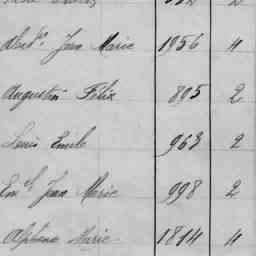 Jean Marie 1956 4
Augustin Félix 895 2
Louis Emile 963 2
Em.l Jean Marie 998 2
Alphonse Marie 1814 4